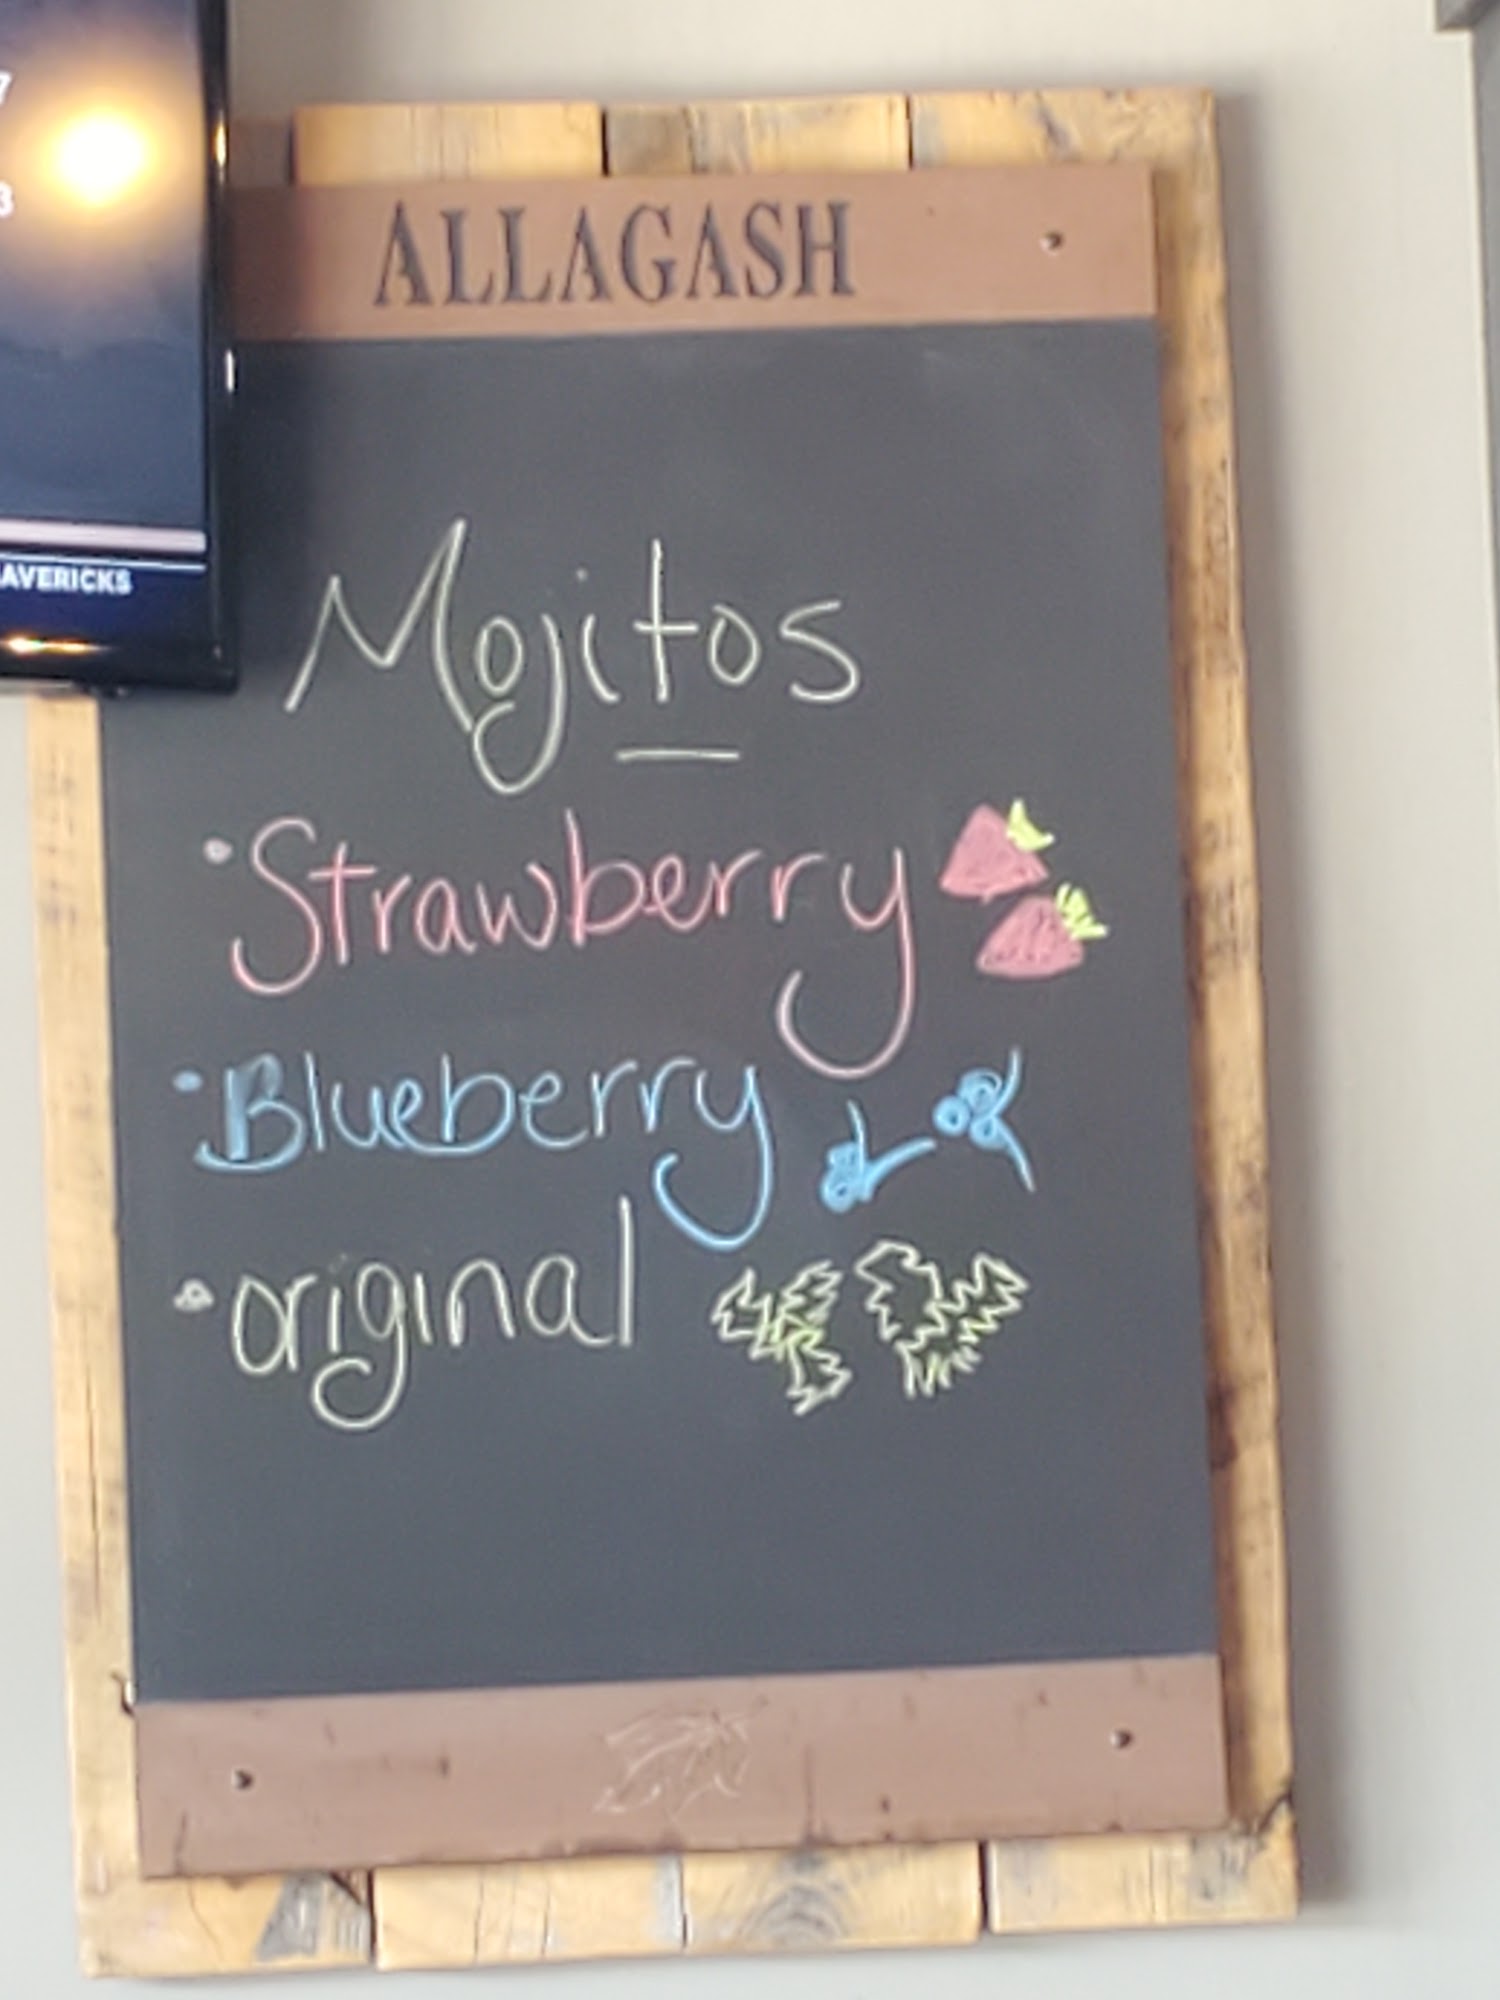 7
3
AVERICKS
ALLAGASH
Mojitos
• Strawberry
• Blueberry
• original